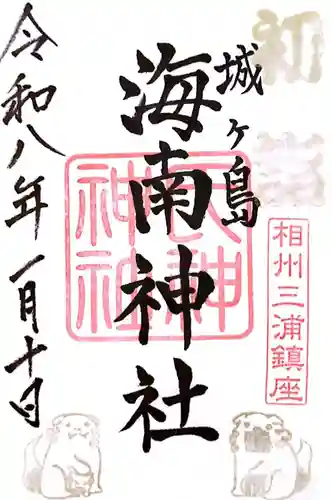 初詣
城ヶ島
海南神社
相州三浦鎮座
令和八年一月十日